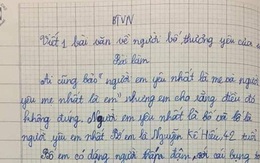 BTVN
Viết 1 bài văn về người bố thương yêu của
Bài làm
Ai cũng bảo "người em yêu nhất là mẹ và người
yêu mẹ nhất là em" nhưng em cho rằng điều đó
không đúng. Người em yêu nhất là bố và bố là
người yêu em nhất. Bố em là Nguyễn Kế Hữu, 42 tuổi
Bố em có dáng người đậm, với cái bụng